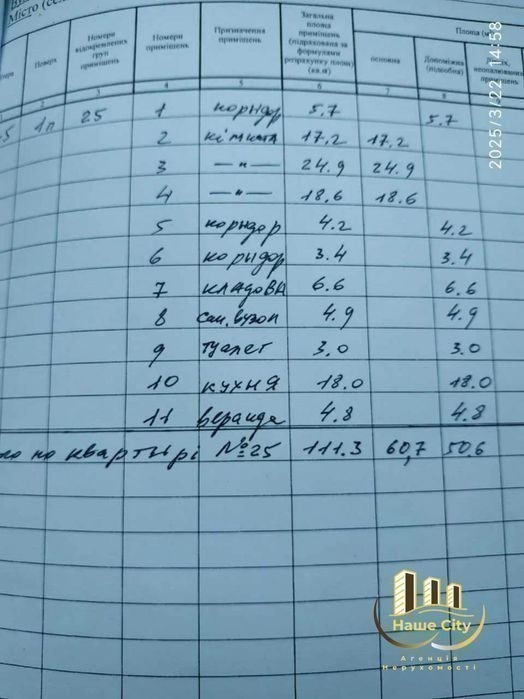 Місто (се
Площа (м
Поверх
Номери відокремлених груп приміщень
Номери приміщень
Призначення приміщень
Загальна площа приміщень (підрахована за формулами розрахунку площ) (кв.м)
основна
Допоміжна (підсобна)
неопалюваних приміщень
2 3 4 5 6 7 8
1п 25 1 коридор 5.7 5.7
2 кімната 17,2 17,2
3 —"— 24.9 24.9
4 —"— 18.6 18.6
5 коридор 4.2 4.2
6 коридор 3.4 3.4
7 кладова 6.6 6.6
8 сан.вузол 4.9 4.9
9 туалет 3.0 3.0
10 кухня 18.0 18.0
11 веранда 4.8 4.8
по квартырі №25 111.3 60,7 50.6
2025/3/22 14:58
Наше City
Агенція
Нерухомості